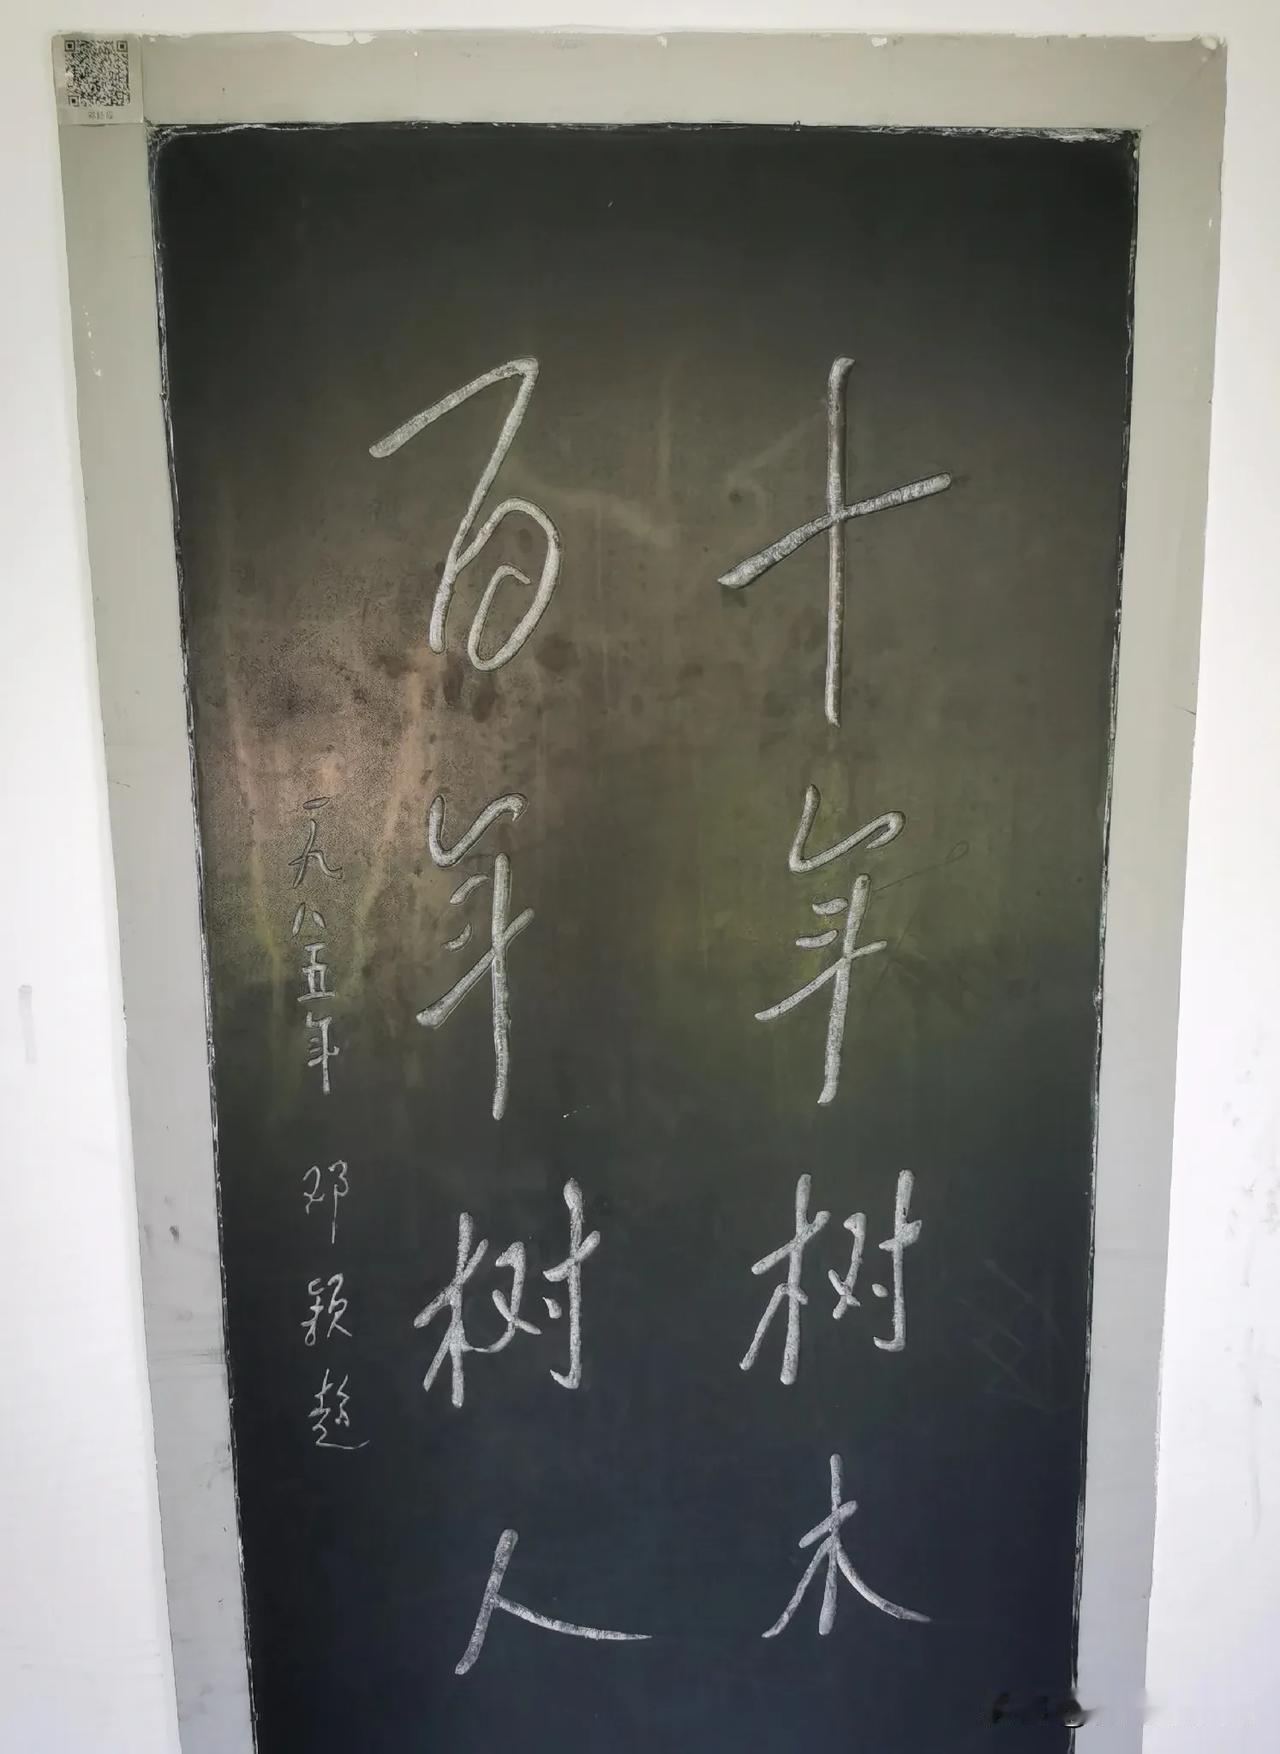 十年树木
百年树人
一九八五年 邓颖超